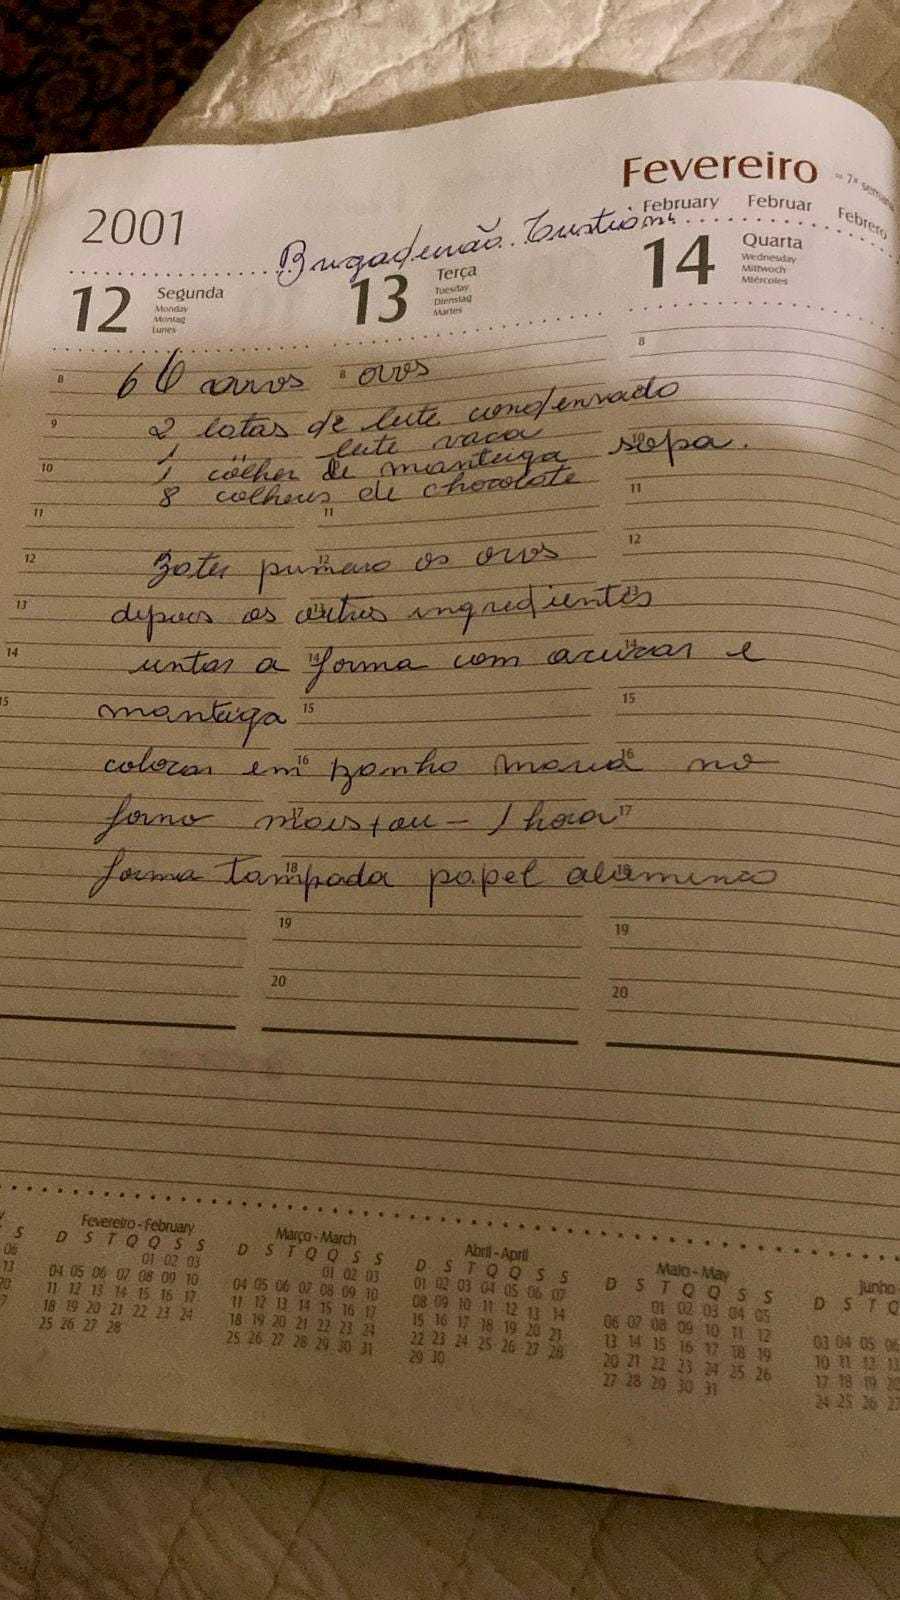 Fevereiro = 7ª semana
2001 February Februar Febrero
Brigadeirão
12 Segunda Monday Montag Lunes
13 Terça Tuesday Dienstag Martes
14 Quarta Wednesday Mittwoch Miércoles
8 6 8 ovos 8
9 2 latas de leite condensado
1 " leite vaca
10 1 colher de manteiga sopa.
8 colheres de chocolate
11 11 11
12 Bater primeiro os ovos 12
13 depois os outros ingredientes
14 untar a forma com acucar e
15 manteiga 15 15
colocar em banho maria no
forno mais + ou - 1 hora
forma tampada papel aluminio
19 19
20 20
Fevereiro - February
D S T Q Q S S
01 02 03
04 05 06 07 08 09 10
11 12 13 14 15 16 17
18 19 20 21 22 23 24
25 26 27 28
Março - March
D S T Q Q S S
01 02 03
04 05 06 07 08 09 10
11 12 13 14 15 16 17
18 19 20 21 22 23 24
25 26 27 28 29 30 31
Abril - April
D S T Q Q S S
01 02 03 04 05 06 07
08 09 10 11 12 13 14
15 16 17 18 19 20 21
22 23 24 25 26 27 28
29 30
Maio - May
D S T Q Q S S
01 02 03 04 05
06 07 08 09 10 11 12
13 14 15 16 17 18 19
20 21 22 23 24 25 26
27 28 29 30 31
Junho -
D S T Q
03 04 05 06
10 11 12 13
17 18 19 20
24 25 26 27